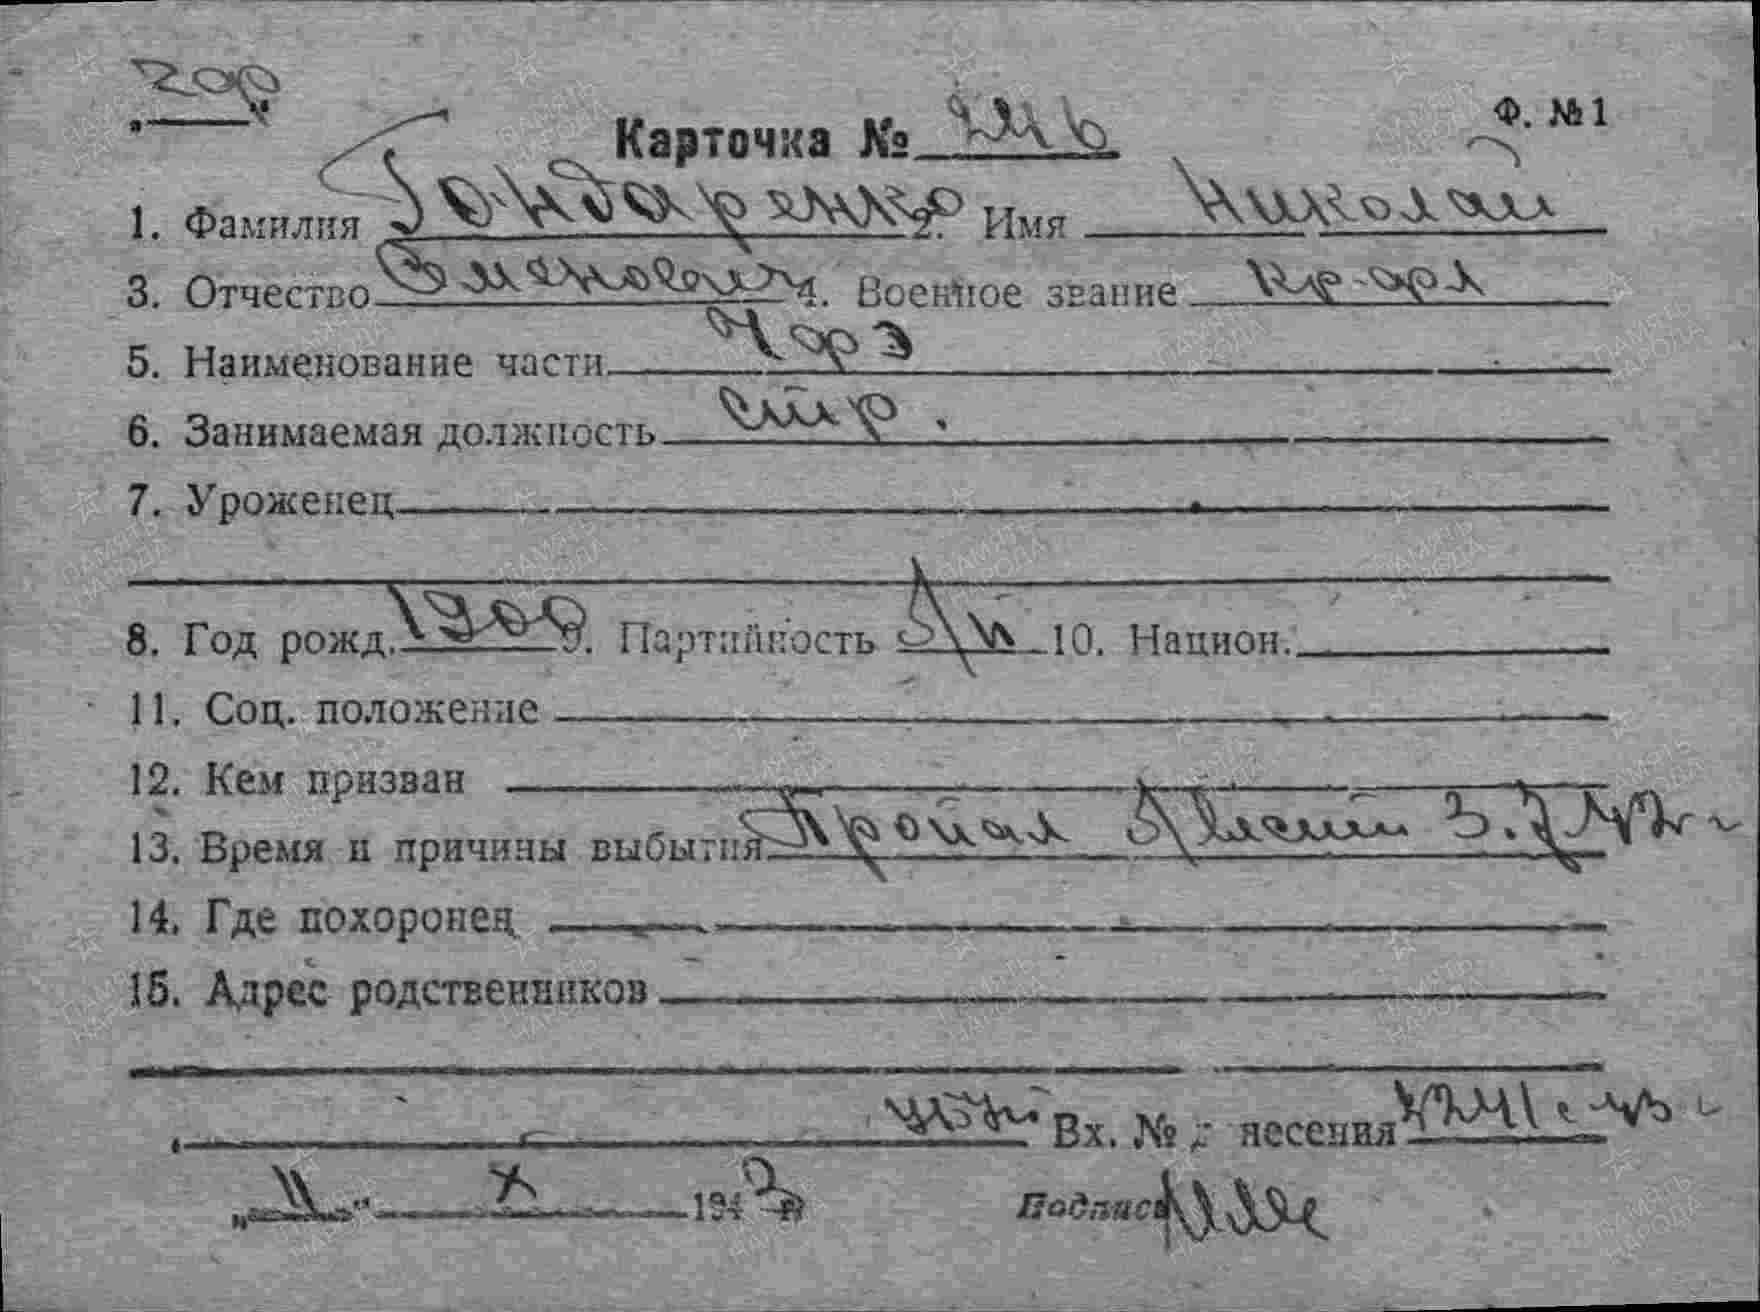 гар
Ф. №1
Карточка № 246
1. Фамилия Гондаренко 2. Имя Николай
3. Отчество Семенович 4. Военное звание кр-арм
5. Наименование части
6. Занимаемая должность стр.
7. Уроженец
8. Год рожд. 1900 9. Партийность б/п 10. Национ.
11. Соц. положение
12. Кем призван
13. Время и причины выбытия Пропал б/вести 3.7.42 г
14. Где похоронен
15. Адрес родственников
Вх. № несения 43 г
„11“ X 1943 г. Подпись
ПАМЯТЬ НАРОДА